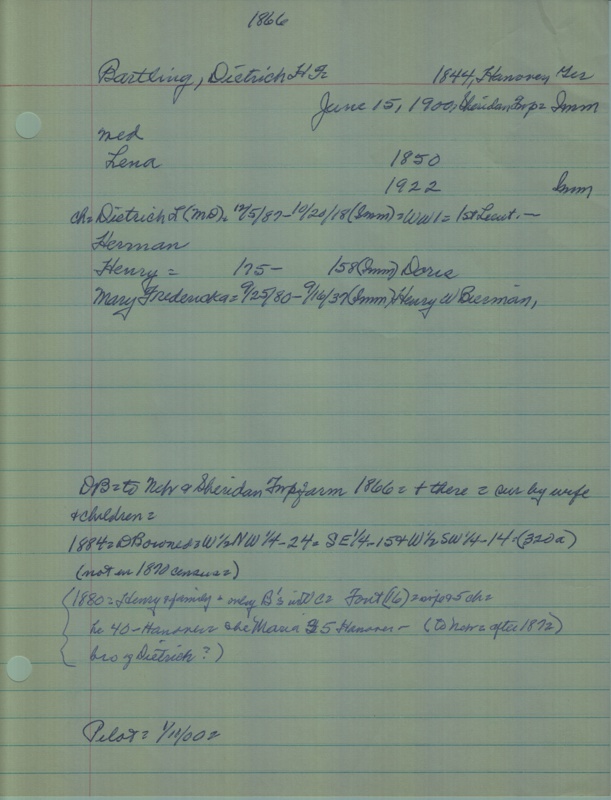 1866
Bartling, Dietrich H Fr 1844, Hanover, Ger
June 15, 1900, Sheridan Twp = Imm
med
Lena 1850
1922 Imm
ch = Dietrich L (MD) = 12/5/87 - 10/20/18 (Imm) = WW1 = 1st Lieut. -
Herman
Henry = 175 - 158 (Imm) Doris
Mary Fredericka = 9/25/80 - 9/16/37 (Imm) Henry W Bierman,
DB = to Neb & Sheridan Twp farm 1866 = + there = sur by wife
+ children =
1884 = DB owned = W 1/2 NW 1/4 - 24 = SE 1/4 - 15 + W 1/2 SW 1/4 - 14 - (320a)
(not in 1870 census =)
(1880 = Henry & family = only B's in = Font (16) = wife & 5 ch =
he 40 - Hanover = she Maria 35 Hanover - (to = after 1872)
bro of Dietrich?)
Pilot = 1/11/00 =